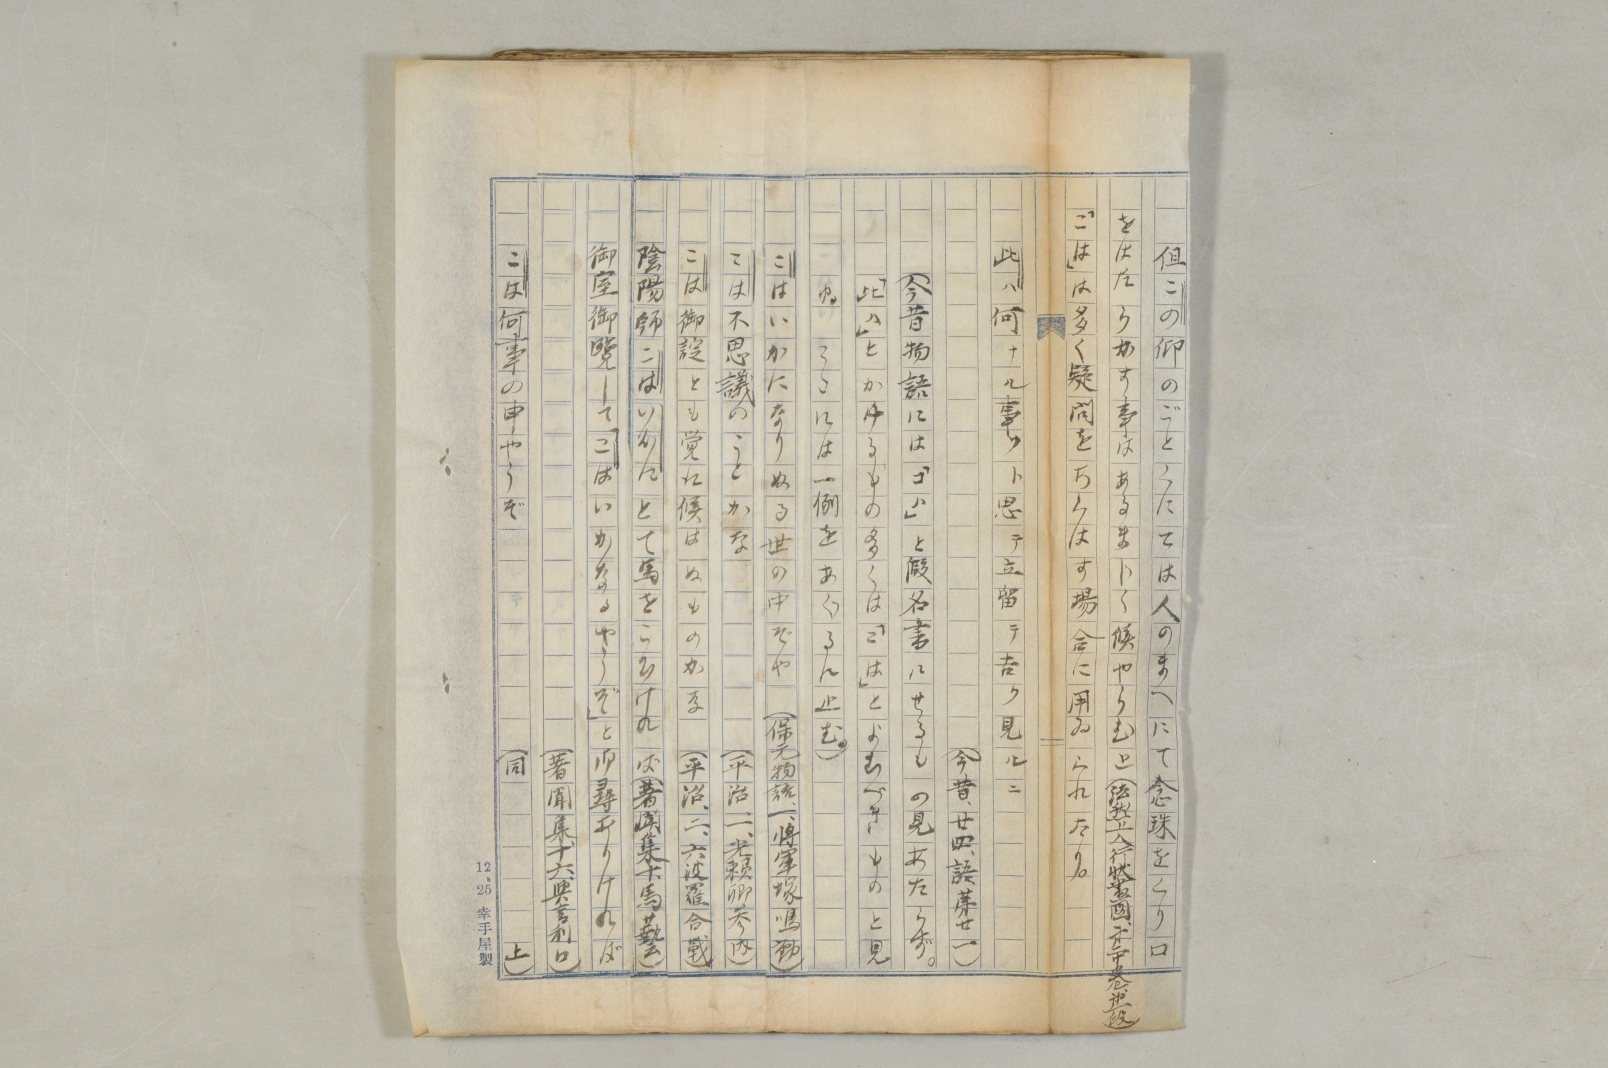 但この仰のごとくにては人のまへにて念珠をくり口
をはたらかす事はあるまじく候やらむと
「こは」は多く疑問をあらはす場合に用ゐられたり。
此ハ何ナル事ゾト思テ立留テ吉ク見ルニ
(今昔、廿四、語第廿一)
(今昔物語には「コハ」と假名書にせるもの見あたらず。
「此ハ」とかけるもの多くは「こは」とよむべきものと見
ゆ。こゝには一例をあぐるに止む。)
こはいかになりぬる世の中ぞや(保元物語、一、將軍塚鳴動)
こは不思議のことかな(平治一、光頼卿参内)
こは御諚とも覚え候はぬものかな(平治、二、六波羅合戰)
陰陽師こはいかにとて馬をこひければ(著聞集十、馬藝)
御室御覽して「こはいかなるやうぞ」と御尋ありければ
(著聞集十六、興言利口)
こは何事の申やうぞ(同上)
12.25 幸手屋製